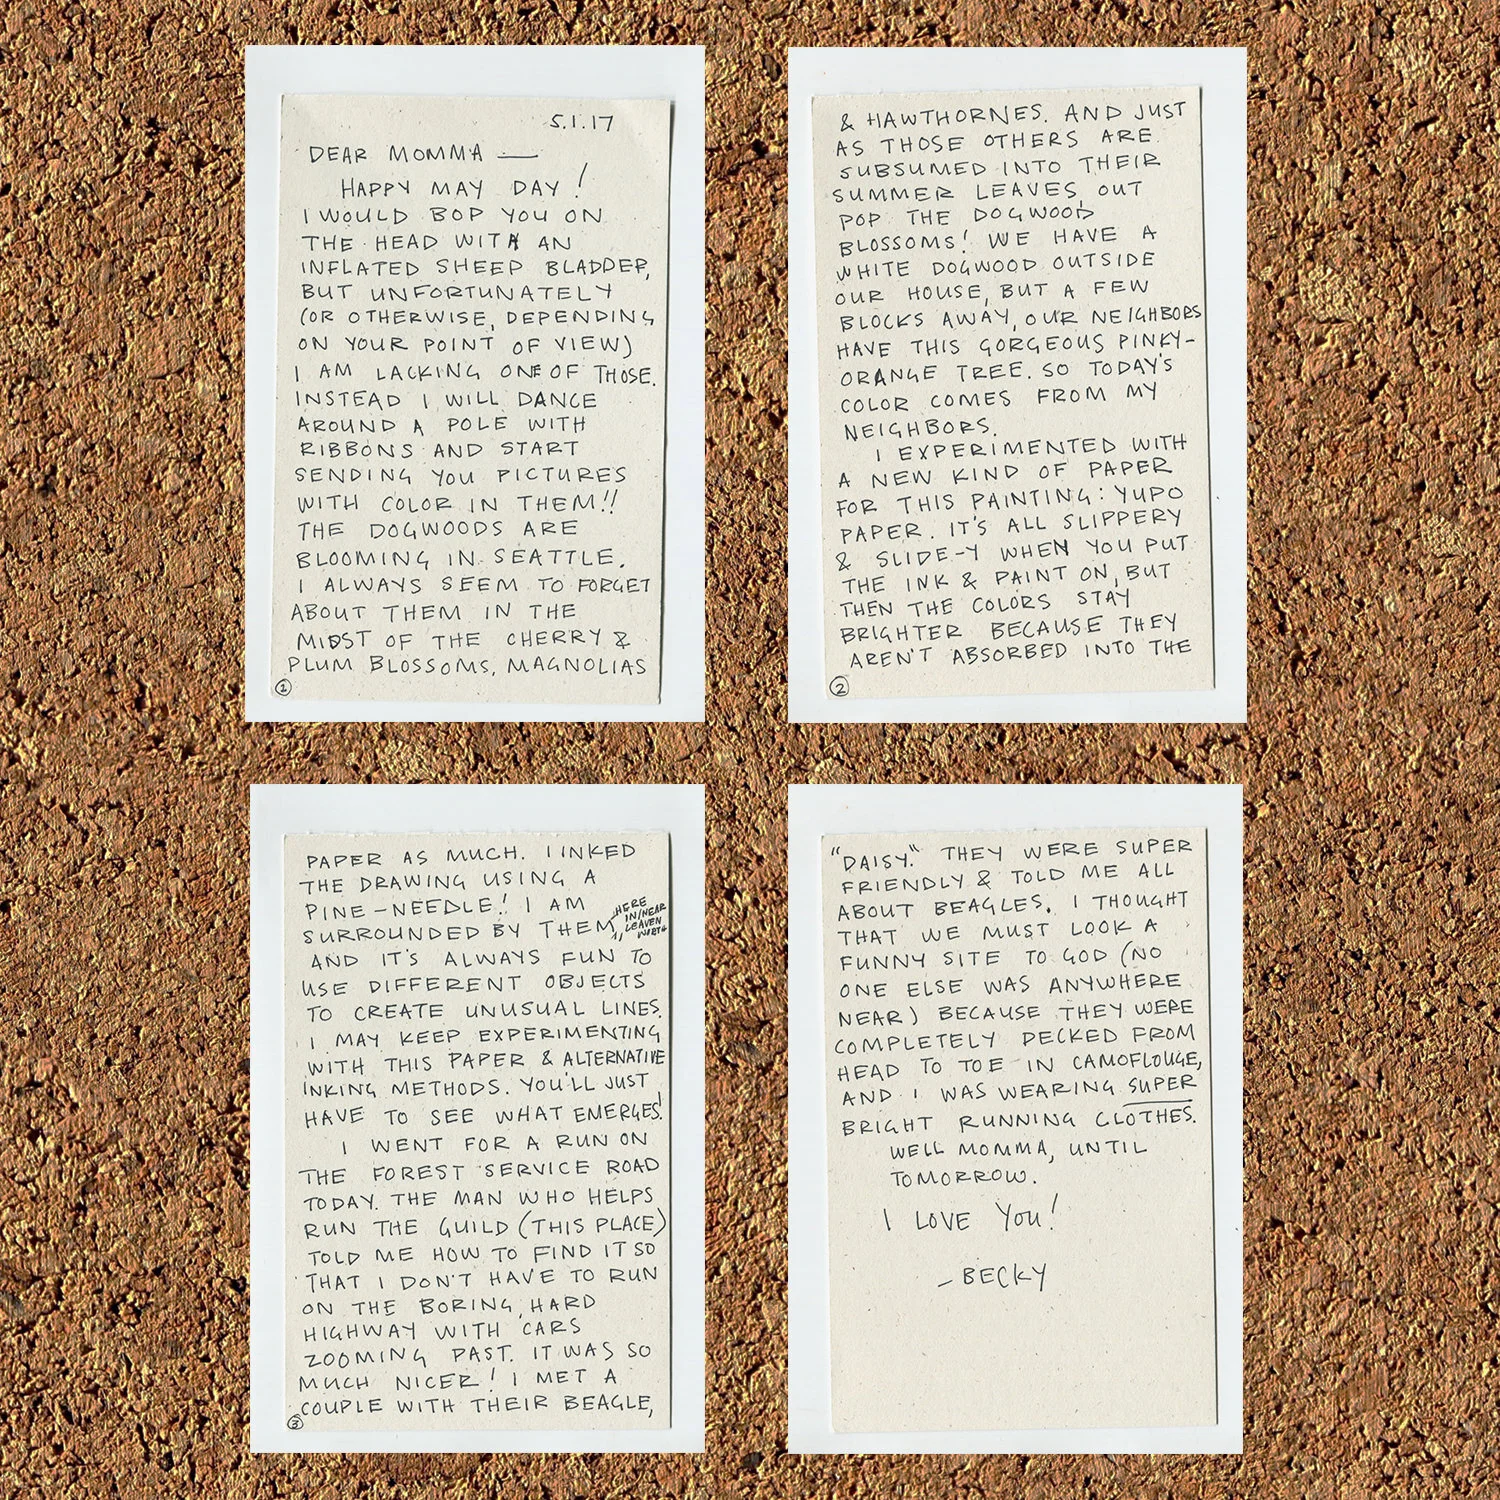 5.1.17
DEAR MOMMA —
HAPPY MAY DAY!
I WOULD BOP YOU ON
THE HEAD WITH AN
INFLATED SHEEP BLADDER,
BUT UNFORTUNATELY
(OR OTHERWISE, DEPENDING
ON YOUR POINT OF VIEW)
I AM LACKING ONE OF THOSE.
INSTEAD I WILL DANCE
AROUND A POLE WITH
RIBBONS AND START
SENDING YOU PICTURES
WITH COLOR IN THEM!!
THE DOGWOODS ARE
BLOOMING IN SEATTLE.
I ALWAYS SEEM TO FORGET
ABOUT THEM IN THE
MIDST OF THE CHERRY &
PLUM BLOSSOMS, MAGNOLIAS
1
& HAWTHORNES. AND JUST
AS THOSE OTHERS ARE
SUBSUMED INTO THEIR
SUMMER LEAVES, OUT
POP THE DOGWOOD
BLOSSOMS! WE HAVE A
WHITE DOGWOOD OUTSIDE
OUR HOUSE, BUT A FEW
BLOCKS AWAY, OUR NEIGHBORS
HAVE THIS GORGEOUS PINKY-
ORANGE TREE. SO TODAY'S
COLOR COMES FROM MY
NEIGHBORS.
I EXPERIMENTED WITH
A NEW KIND OF PAPER
FOR THIS PAINTING: YUPO
PAPER. IT'S ALL SLIPPERY
& SLIDE-Y WHEN YOU PUT
THE INK & PAINT ON, BUT
THEN THE COLORS STAY
BRIGHTER BECAUSE THEY
AREN'T ABSORBED INTO THE
2
PAPER AS MUCH. I INKED
THE DRAWING USING A
PINE-NEEDLE! I AM
SURROUNDED BY THEM, HERE IN/NEAR LEAVENWORTH
AND IT'S ALWAYS FUN TO
USE DIFFERENT OBJECTS
TO CREATE UNUSUAL LINES.
I MAY KEEP EXPERIMENTING
WITH THIS PAPER & ALTERNATIVE
INKING METHODS. YOU'LL JUST
HAVE TO SEE WHAT EMERGES!
I WENT FOR A RUN ON
THE FOREST SERVICE ROAD
TODAY. THE MAN WHO HELPS
RUN THE GUILD (THIS PLACE)
TOLD ME HOW TO FIND IT SO
THAT I DON'T HAVE TO RUN
ON THE BORING, HARD
HIGHWAY WITH CARS
ZOOMING PAST. IT WAS SO
MUCH NICER! I MET A
COUPLE WITH THEIR BEAGLE,
3
"DAISY." THEY WERE SUPER
FRIENDLY & TOLD ME ALL
ABOUT BEAGLES. I THOUGHT
THAT WE MUST LOOK A
FUNNY SITE TO GOD (NO
ONE ELSE WAS ANYWHERE
NEAR) BECAUSE THEY WERE
COMPLETELY DECKED FROM
HEAD TO TOE IN CAMOFLOUGE,
AND I WAS WEARING SUPER
BRIGHT RUNNING CLOTHES.
WELL MOMMA, UNTIL
TOMORROW.
I LOVE YOU!
- BECKY